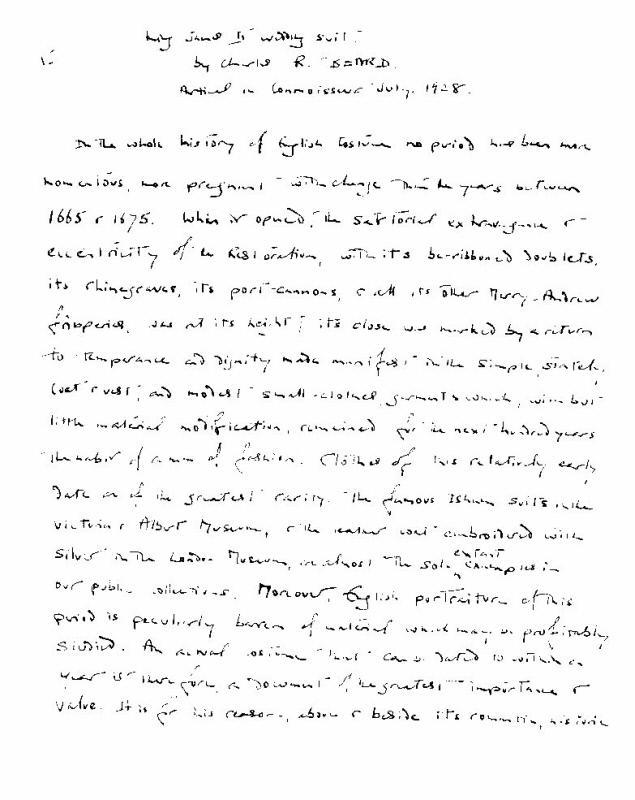 King James II wedding suit.
by Charles R. BEARD.
Article in Connoisseur July. 1928.
In the whole history of English Costume no period has been more
momentous, more pregnant with change than the years between
1665 & 1675. When it opened, the sartorial extravagance &
eccentricity of the Restoration, with its be-ribboned doublets,
its rhinegraves, its port-cannons, & all its other Merry-Andrew
fripperies, was at its height; its close was marked by a return
to temperance and dignity made manifest in the simple, stately,
Coat & vest, and modest small-clothes, garments which, with but
little material modification, remained for the next hundred years
the habit of a man of fashion. Clothes of this relatively early
Date are of the greatest rarity. The famous Isham suits in the
Victoria & Albert Museum, & the leather coat embroidered with
silver in the London Museum, are almost the sole extant examples in
our public collections. Moreover, English portraiture of this
period is peculiarly barren of material which may be profitably
studied. An actual costume that can be dated to within a
year is therefore, a document of the greatest importance &
value. It is for this reason, above & beside its romantic, historic